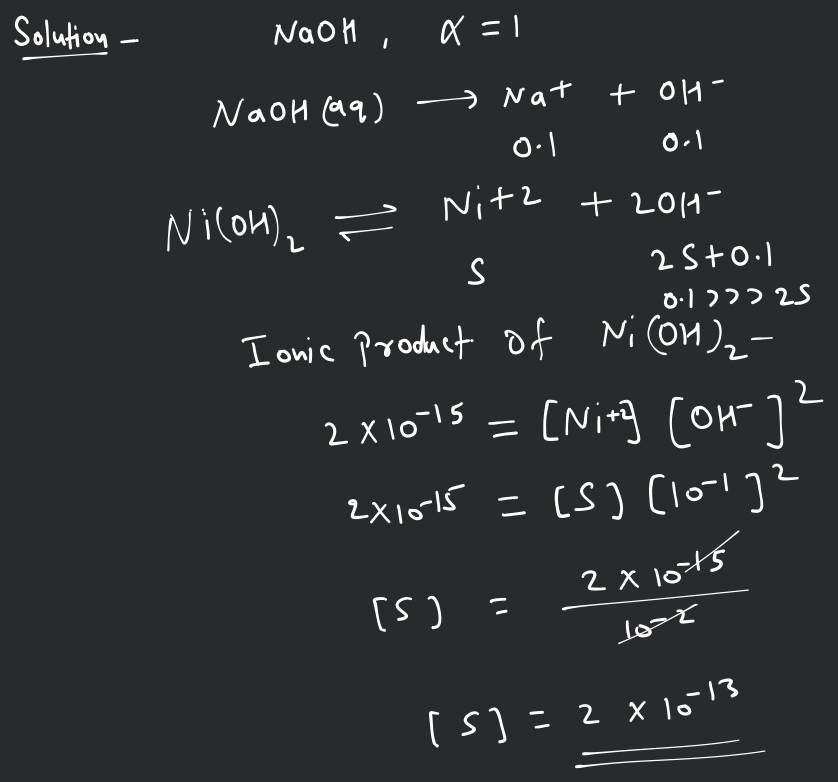 Solution – NaOH , α = 1
NaOH (aq) ⟶ Na+ + OH-
0.1 0.1
Ni(OH)₂ ⇌ Ni+2 + 2OH-
S 2S+0.1
0.1>>>2S
Ionic Product of Ni(OH)₂ –
2×10⁻¹⁵ = [Ni+2] [OH⁻]²
2×10⁻¹⁵ = [S] [10⁻¹]²
[S] = 2 × 10⁻¹⁵
10⁻²
[S] = 2 × 10⁻¹³